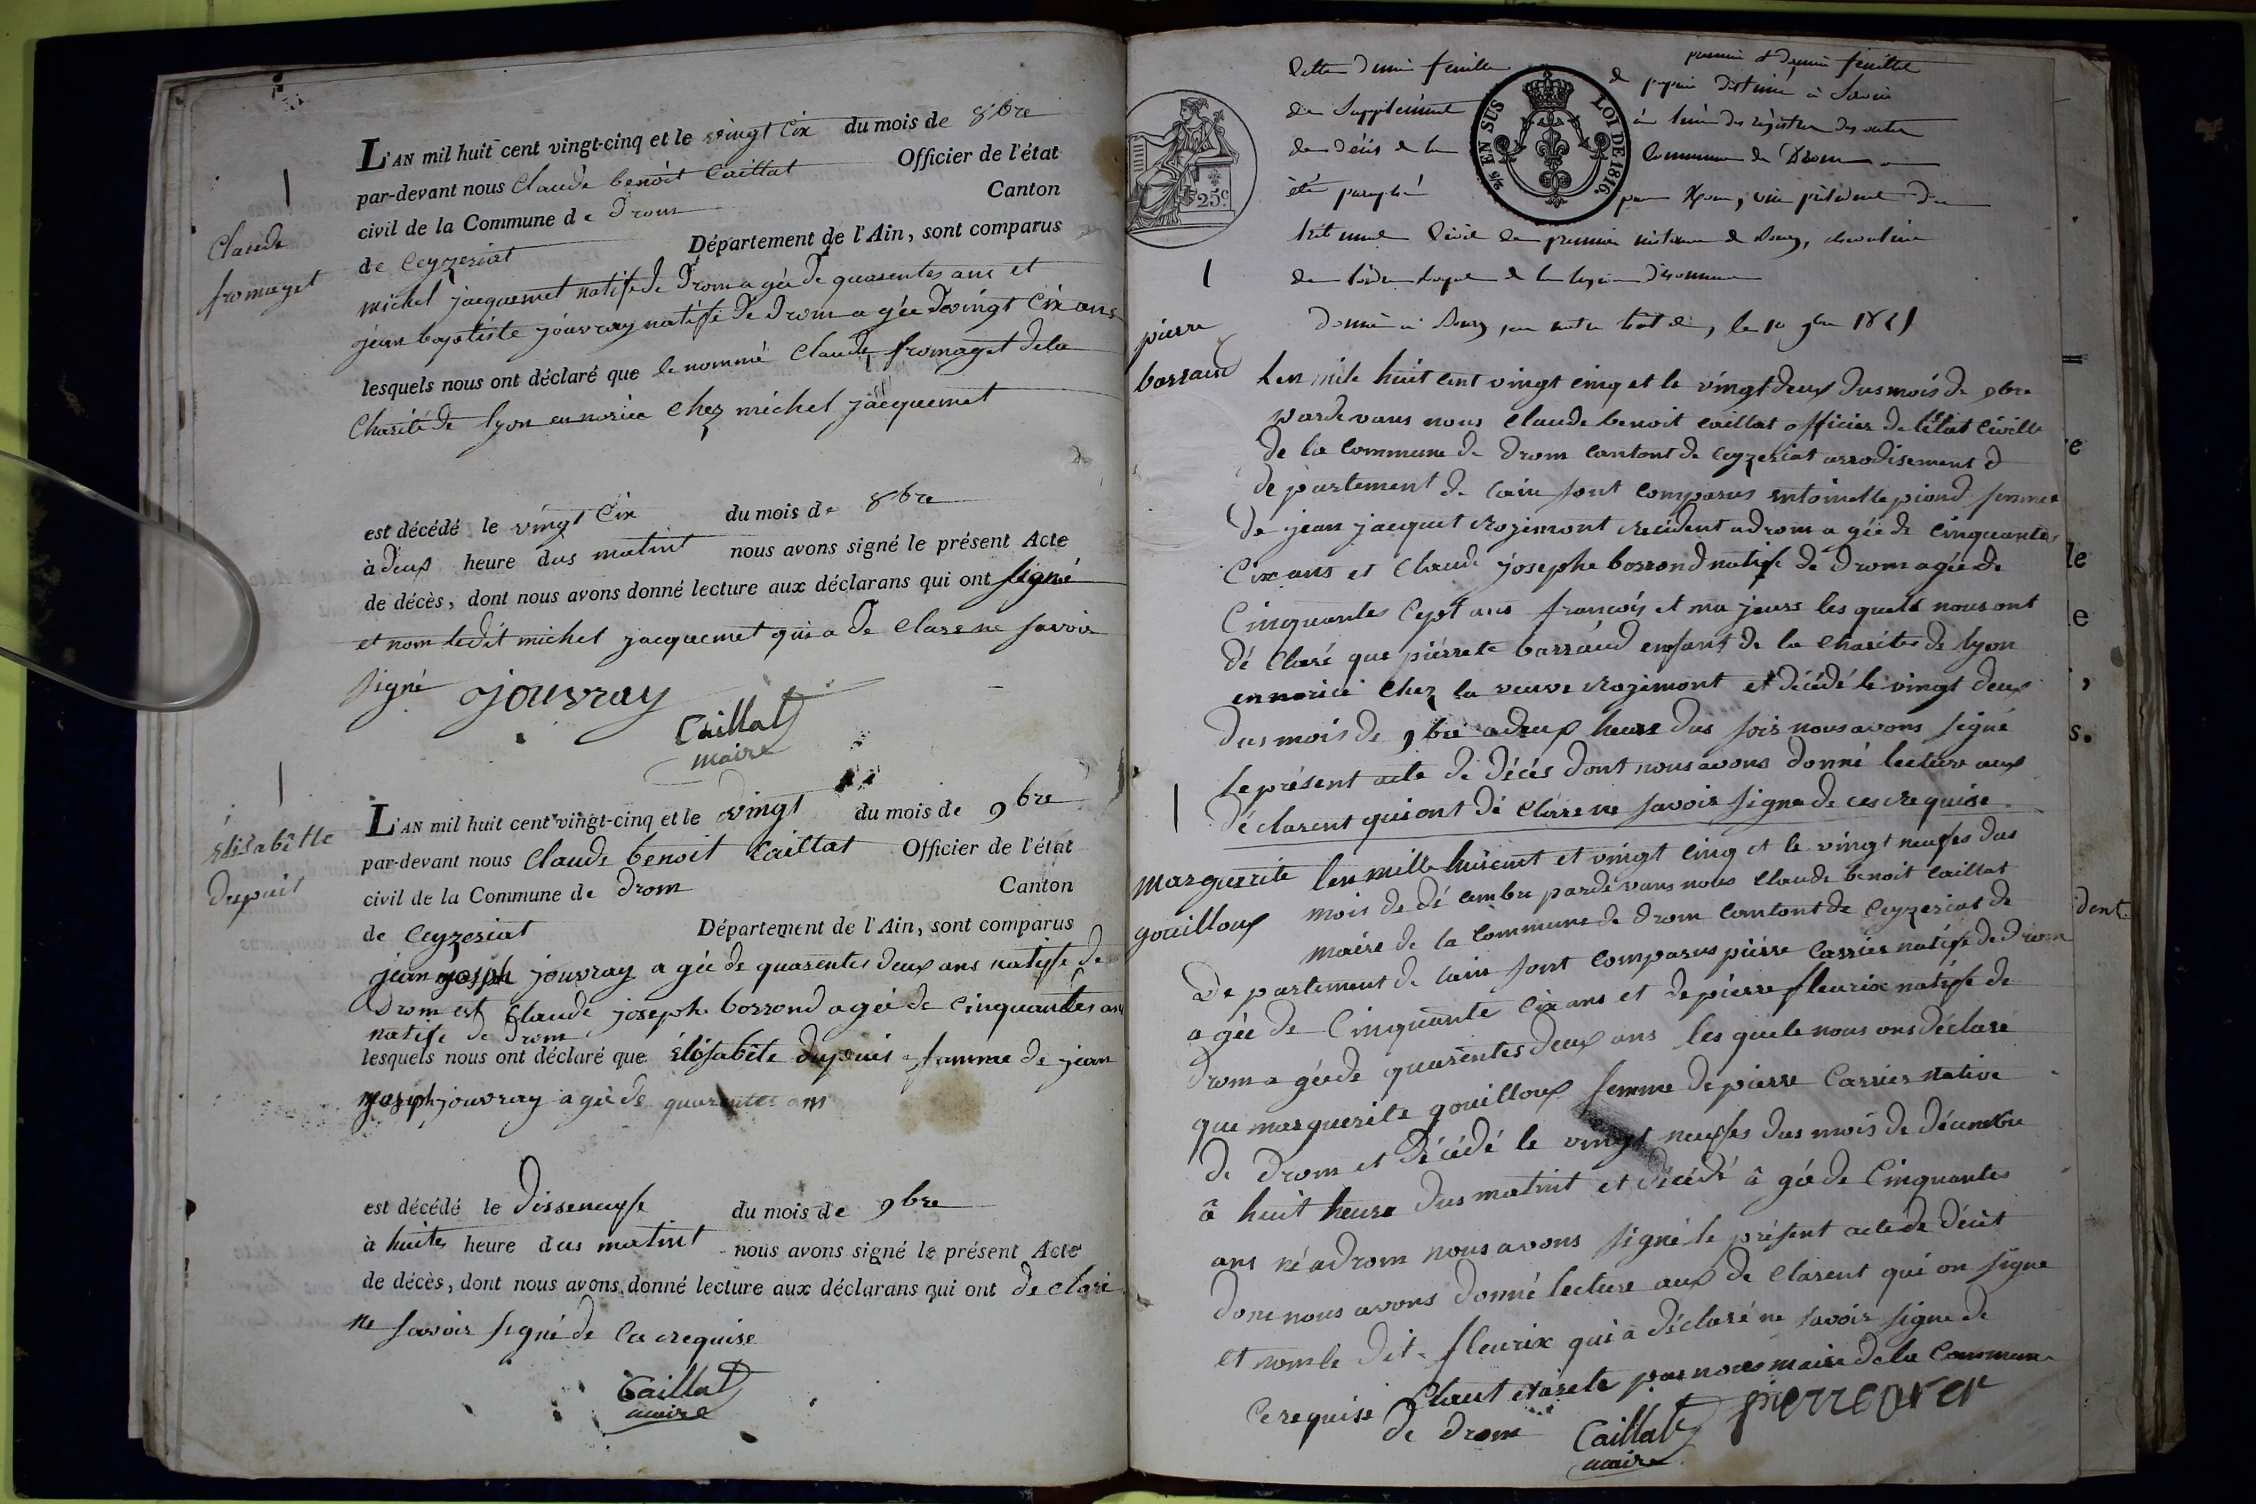 1
Claude
fromaget
L'AN mil huit cent vingt-cinq et le vingt Cix du mois de 8bre
par-devant nous Claude benoit Caillat Officier de l'état
civil de la Commune de Drom Canton
de Ceyzeriat Département de l'Ain, sont comparus
michel jacquemet natife de Drom a gée de quarentes ans et
jean baptiste jouvray natiffe De Drom a gée De vingt Cix ans
lesquels nous ont déclaré que le nommé Claude fromaget dela
Charité de lyon en norice Chez michel jacquemet
est décédé le vingt Cix du mois de 8bre
à deux heure dus matint nous avons signé le présent Acte
de décès, dont nous avons donné lecture aux déclarans qui ont signé
et nom ledit michel jacquemet qui a de Clare ne savoir
signé jouvray
Caillat
maire
1
Elisabette
dupuit
L'AN mil huit cent vingt-cinq et le vingt du mois de 9bre
par-devant nous Claude benoit Caillat Officier de l'état
civil de la Commune de Drom Canton
de Ceyzeriat Département de l'Ain, sont comparus
jean joseph jouvray a gée de quarentes deux ans natiffe de
Drom est Claude joseph borrond a gée de Cinquantes ans
natife de Drom
lesquels nous ont déclaré que Elisabete dupuis famme de jean
joseph jouvray a gée de quarentes ans
est décédé le disseneuf du mois de 9bre
à huites heure dus matint nous avons signé le présent Acte
de décès, dont nous avons donné lecture aux déclarans qui ont de claré
ne savoir signé de Ce requise
Caillat
maire
Cette demie feuille
de Supplément
de décés de la
été paraphé
25c
5/6 EN SUS LOI DE 1816.
premier & dernier feuillet
de papier destiné à Servir
à tenir des registres des actes
Commune de Drom
par vice président du
tribunal Civil de premiere instance de Bourg, chevalier
de l'ordre Royal de la légion d'honneur
1
Donné à Bourg, en notre hôtel, le 10 9bre 1825
pierre
barraud
Len mile huit cent vingt cinq et le vingt deux dus mois de 9bre
pardevans nous Claude benoit Caillat officier de l'état Civille
de la Commune de Drom Cantont de Ceyzeriat arrodisement d
de partement de lain sont comparus entoinette piond femme
de jean jacquet Rozimont Recident a drom a gée de Cinquantes
Cix ans et Claude josephe borrond natife de Drom agée de
Cinquantes Cept ans françois et ma jeurs les quels nous ont
dé Claré que pierrete barraud enfant de la Charité de lyon
en norice Chez la veuve Rozimont et décédé le vingt deux
dus mois de 9bre a deux heure dus soir nous avons signé
le présent acte de décés dont nous avons donné lecture aux
déclarent qui ont dé Claré ne savoir signe de ce requise
1
marguerite
gouilloux
len mille huicent et vingt cinq et le vingt neufes dus
mois de dé cembre pardevans nous Claude benoit Caillat
maire de la Commune de Drom Cantont de Ceyzeriat de
De partement de lain sont comparus pierre Carrier natife de Drom
a gée de Cinquante Cix ans et de pierre fleurix natife de
Drom a géede quarentes deux ans les quele nous ons déclaré
que marguerite gouilloux femme de pierre Carrier native
de Drom et décédé le vingt neuffes dus mois de décembre
à huit heure dus matint et décédé â gé de Cinquantes
ans né a drom nous avons signé le présent acte de décèt
dont nous avons donné lecture aux de Clarent qui on signe
et nom le dit fleurix qui à déclaré ne savoir signe de
Ce requise Claut et arete par nous maire dela Commune
de Drom Caillat
maire
e
le
e
,
s.
dent